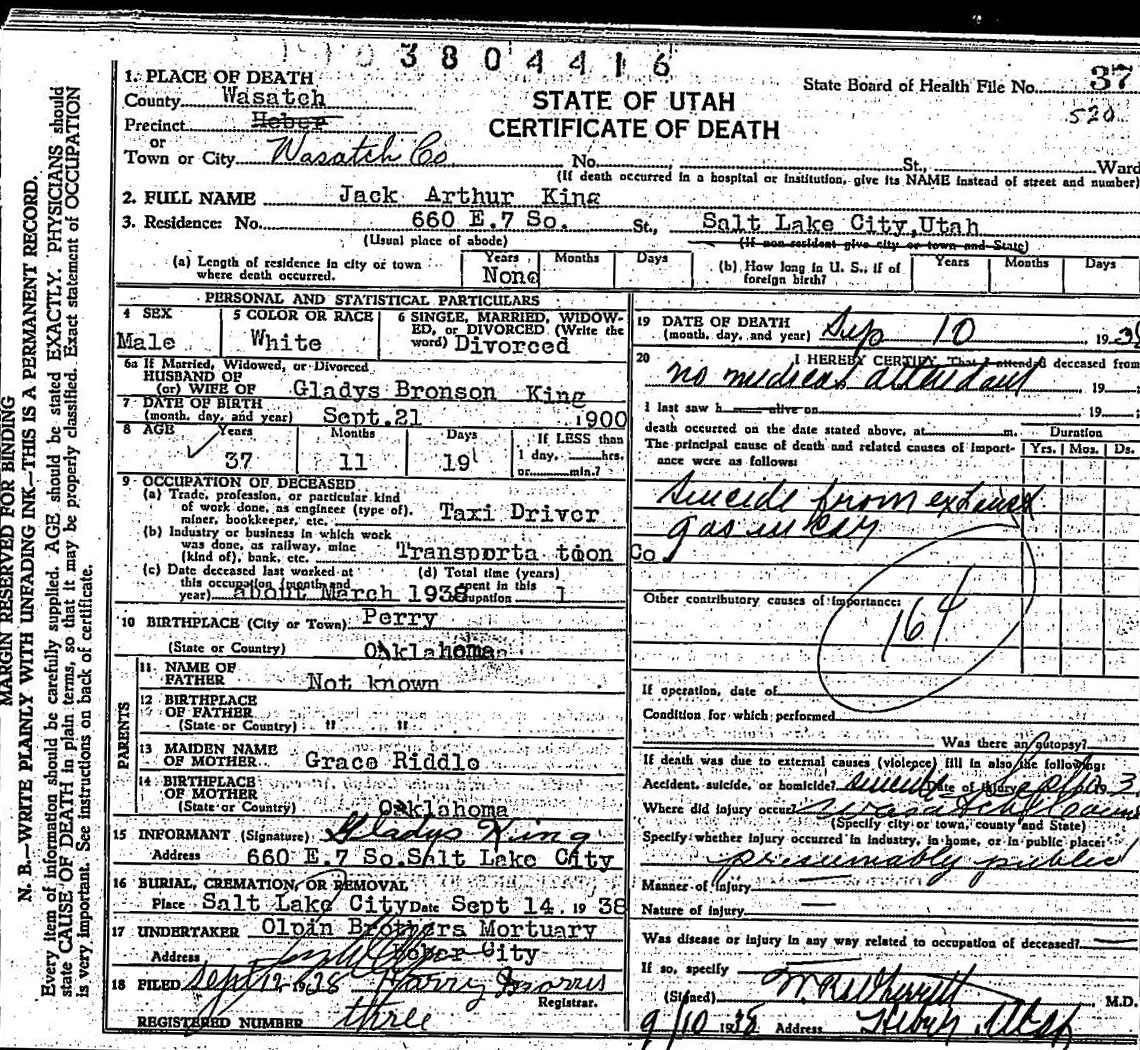 3804416
1. PLACE OF DEATH
State Board of Health File No. 37
County Wasatch
STATE OF UTAH
520
Precinct Heber
CERTIFICATE OF DEATH
or
Town or City Wasatch Co No. St., Ward
(If death occurred in a hospital or institution, give its NAME instead of street and number)
2. FULL NAME Jack Arthur King
3. Residence: No. 660 E.7 So. St., Salt Lake City,Utah
(Usual place of abode) (If non-resident give city or town and State)
(a) Length of residence in city or town where death occurred. Years None Months Days (b) How long in U. S., if of foreign birth? Years Months Days
PERSONAL AND STATISTICAL PARTICULARS
4 SEX Male
5 COLOR OR RACE White
6 SINGLE, MARRIED, WIDOW-
ED, or DIVORCED (Write the
word) Divorced
6a If Married, Widowed, or Divorced
HUSBAND OF
(or) WIFE OF Gladys Bronson King
7 DATE OF BIRTH
(month, day, and year) Sept.21 1900
8 AGE Years Months Days If LESS than
37 11 19 1 day, hrs.
or min.?
9 OCCUPATION OF DECEASED
(a) Trade, profession, or particular kind
of work done, as engineer (type of),
miner, bookkeeper, etc. Taxi Driver
(b) Industry or business in which work
was done, as railway, mine
(kind of), bank, etc. Transporta tion Co
(c) Date deceased last worked at
this occupation (month and
year) about March 1938
(d) Total time (years)
spent in this
occupation 1
10 BIRTHPLACE (City or Town) Perry
(State or Country) Oaklahoma
PARENTS
11 NAME OF
FATHER Not known
12 BIRTHPLACE
OF FATHER
(State or Country) " "
13 MAIDEN NAME
OF MOTHER Grace Riddle
14 BIRTHPLACE
OF MOTHER
(State or Country) Oaklahoma
15 INFORMANT (Signature) Gladys King
Address 660 E.7 So.Salt Lake City
16 BURIAL, CREMATION, OR REMOVAL
Place Salt Lake City Date Sept 14. 1938
17 UNDERTAKER Olpin Brothers Mortuary
Address Heber City
18 FILED Sept 12 1938 Harry Morris
Registrar.
REGISTERED NUMBER three
19 DATE OF DEATH
(month, day, and year) Sep 10 1938
20 I HEREBY CERTIFY, That I attended deceased from
no medical attendant 19
I last saw h alive on 19
death occurred on the date stated above, at m. Duration
The principal cause of death and related causes of import-
ance were as follows: Yrs. Mos. Ds.
Suicide from exhaust
gas in car
Other contributory causes of importance:
164
If operation, date of
Condition for which performed
Was there an autopsy?
If death was due to external causes (violence) fill in also the following:
Accident, suicide, or homicide? suicide Date of injury Sept 10 193
Where did injury occur? Wasatch Coun
(Specify city or town, county and State)
Specify whether injury occurred in industry, in home, or in public place:
presumably public
Manner of injury
Nature of injury
Was disease or injury in any way related to occupation of deceased?
If so, specify
(Signed) M.D.
9/10 1938 Address Heber, Utah
MARGIN RESERVED FOR BINDING
N. B.—WRITE PLAINLY WITH UNFADING INK—THIS IS A PERMANENT RECORD.
Every item of information should be carefully supplied. AGE should be stated EXACTLY. PHYSICIANS should
state CAUSE OF DEATH in plain terms, so that it may be properly classified. Exact statement of OCCUPATION
is very important. See instructions on back of certificate.